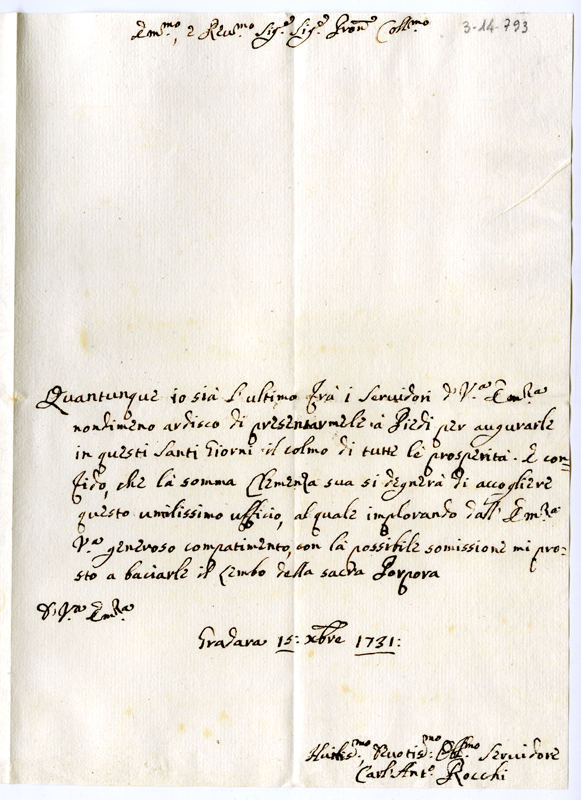 Em.mo, e Rev.mo Sig.e Sig.e Pron.e Coll.mo
3-14-793
Quantunque io sia l'ultimo frà i Servidori d'V.a Em.za
nondimeno ardisco di presentarmele à Piedi per augurarle
in questi Santi Giorni il colmo di tutte le prosperità. E con=
fido, che la somma Clemenza sua si degnerà di accogliere
questo umilissimo ufficio, al quale implorando dall'Em.za
V.a generoso compatimento, con là possibile somissione mi pro=
sto a baciarle il Lembo della sacra Porpora
D'V.a Em.za
Gradara 15: xbre 1731:
Humilis.mo, Devotis.mo: Obl.mo Servidore
Carl'Ant.o Rocchi